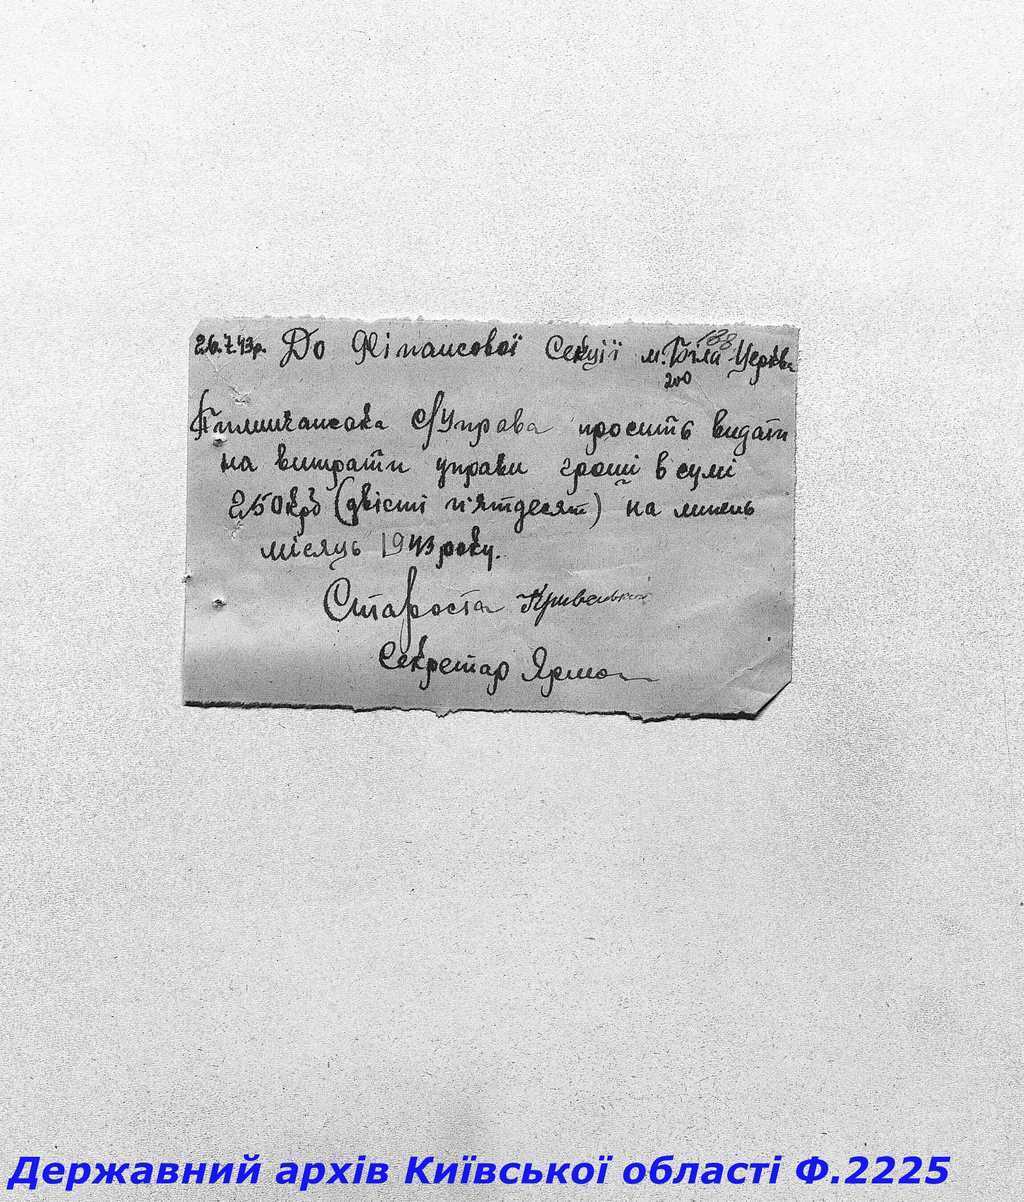 26.7.43р. До Фінансової Секції м. Біла Церква
138
200
Пилипчанська С/Управа просить видати
на витрати управи гроші в сумі
250 крб (двісті п'ятдесят) на липень
місяць 1943 року.
Староста
Секретар
Державний архів Київської області Ф.2225